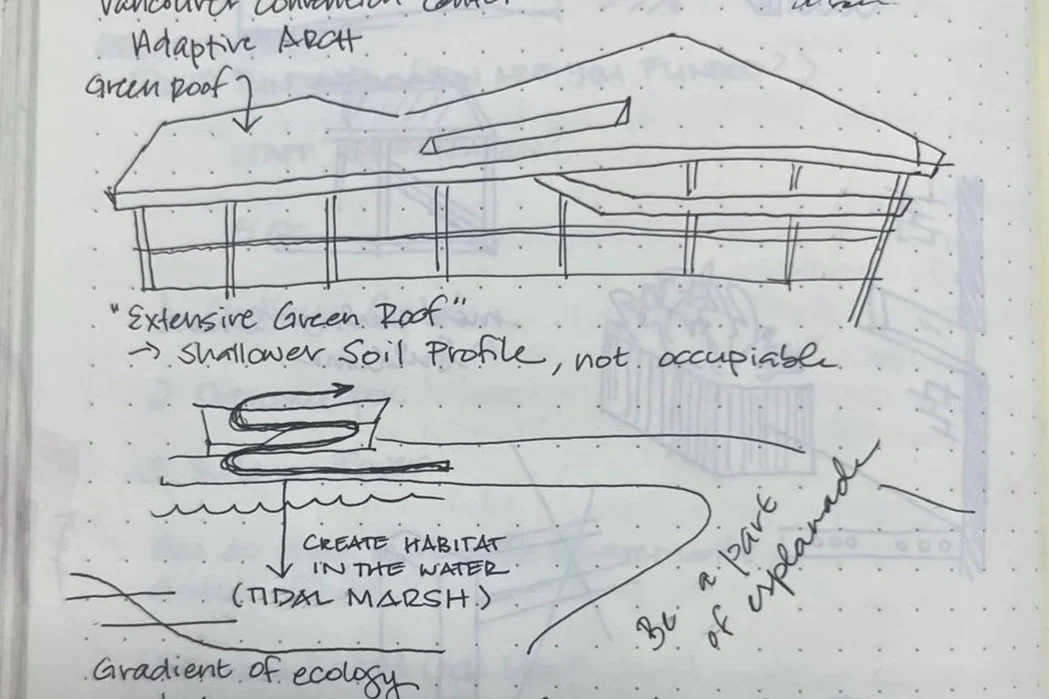 Vancouver Convention Center
Adaptive ARCH
Green Roof
"Extensive Green Roof"
→ Shallower Soil Profile, not occupiable
CREATE HABITAT
IN THE WATER
(TIDAL MARSH)
Be a part
of esplanade
Gradient of ecology